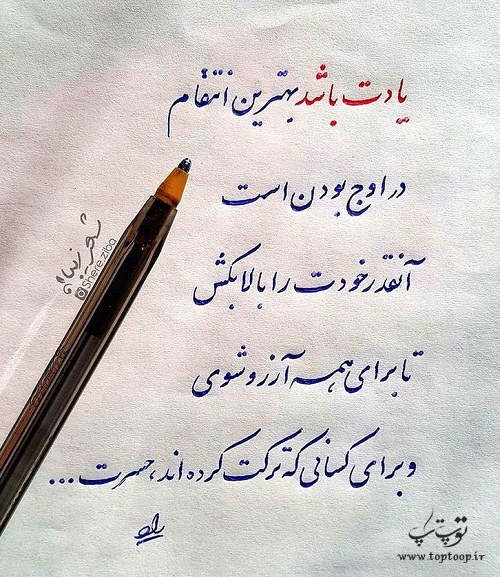 یادت باشد بهترین انتقام
در اوج بودن است
آنقدر خودت را بالا بکش
تا برای همه آرزو شوی
و برای کسانی که ترکت کرده اند، حسرت ...
شعر زیبا
@Shere.ziba
توپ تاپ
www.toptoop.ir